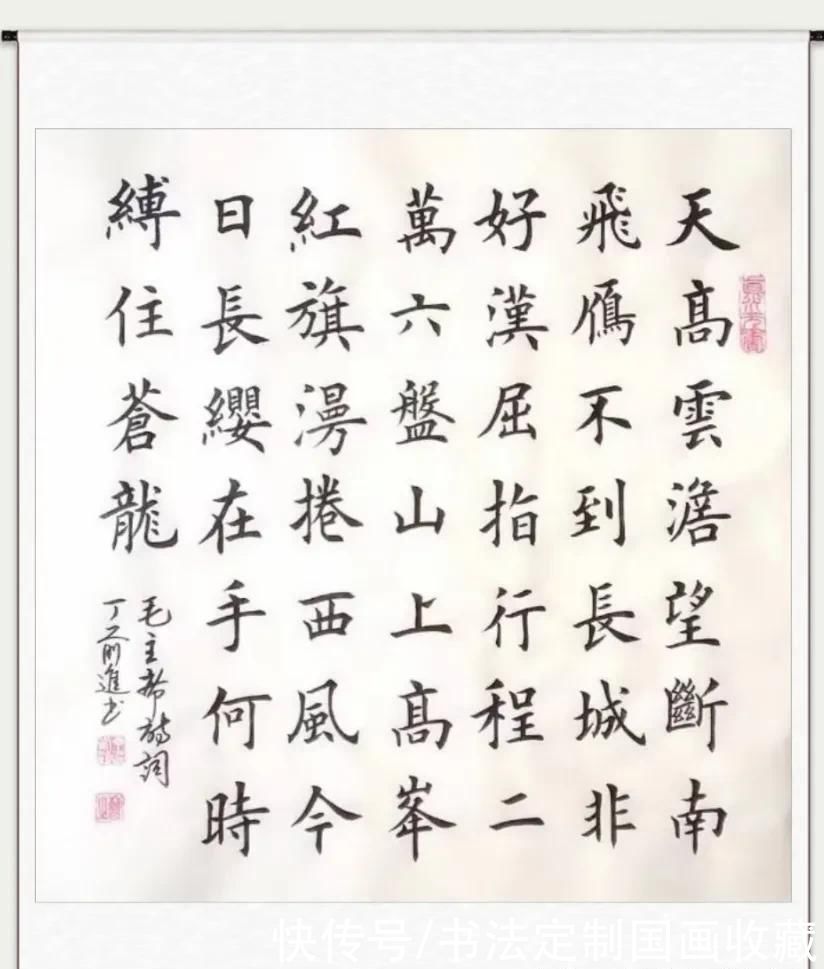 天高雲澹望斷南
飛鴈不到長城非
好漢屈指行程二
萬六盤山上高峯
紅旗漫捲西風今
日長纓在手何時
縛住蒼龍
毛主席詩詞
丁前進书
快传号/书法定制国画收藏